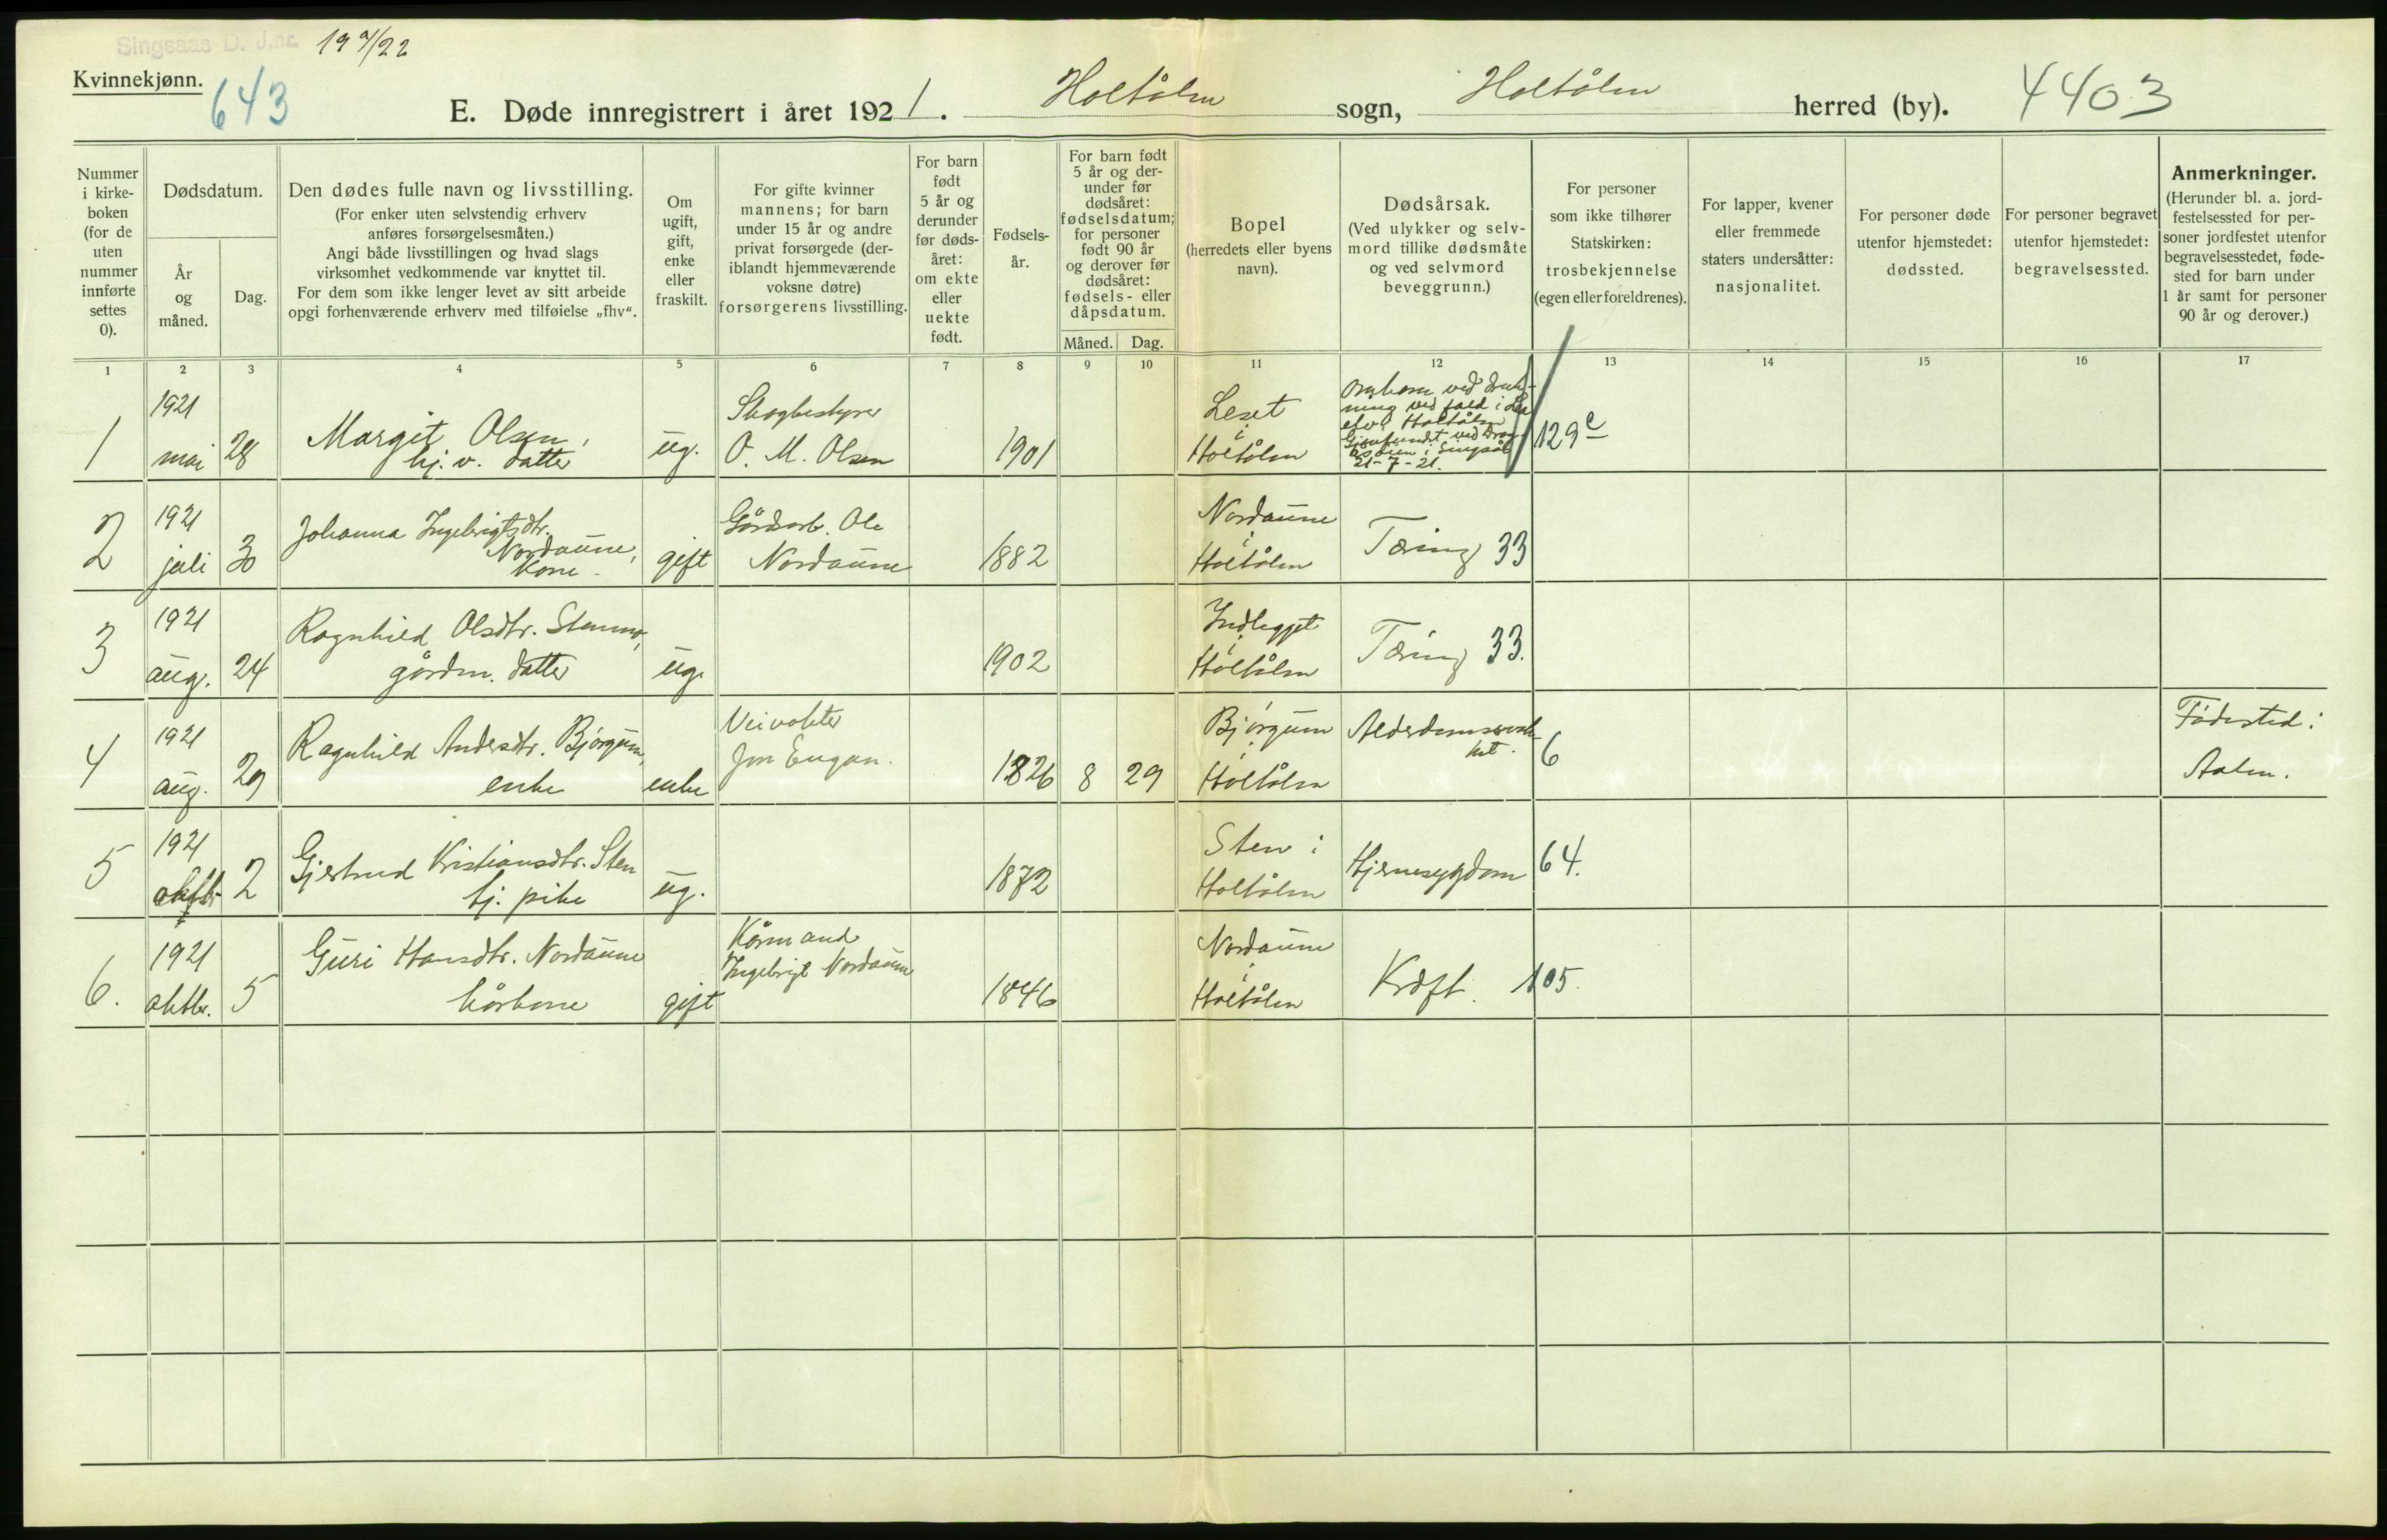 Singsaas D. J.nr. 19 9/22
Kvinnekjønn.
643
E. Døde innregistrert i året 1921. Holtålen sogn, Holtålen herred (by).
4403
Nummer
i kirke-
boken
(for de
uten
nummer
innførte
settes
0).
Dødsdatum.
År
og
måned.
Dag.
Den dødes fulle navn og livsstilling.
(For enker uten selvstendig erhverv
anføres forsørgelsesmåten.)
Angi både livsstillingen og hvad slags
virksomhet vedkommende var knyttet til.
For dem som ikke lenger levet av sitt arbeide
opgi forhenværende erhverv med tilføielse „fhv“.
Om
ugift,
gift,
enke
eller
fraskilt.
For gifte kvinner
mannens; for barn
under 15 år og andre
privat forsørgede (der-
iblandt hjemmeværende
voksne døtre)
forsørgerens livsstilling.
For barn
født
5 år og
derunder
før døds-
året:
om ekte
eller
uekte
født.
Fødsels-
år.
For barn født
5 år og der-
under før
dødsåret:
fødselsdatum;
for personer
født 90 år
og derover før
dødsåret:
fødsels- eller
dåpsdatum.
Måned.
Dag.
Bopel
(herredets eller byens
navn).
Dødsårsak.
(Ved ulykker og selv-
mord tillike dødsmåte
og ved selvmord
beveggrunn.)
For personer
som ikke tilhører
Statskirken:
trosbekjennelse
(egen eller foreldrenes).
For lapper, kvener
eller fremmede
staters undersåtter:
nasjonalitet.
For personer døde
utenfor hjemstedet:
dødssted.
For personer begravet
utenfor hjemstedet:
begravelsessted.
Anmerkninger.
(Herunder bl. a. jord-
festelsessted for per-
soner jordfestet utenfor
begravelsesstedet, føde-
sted for barn under
1 år samt for personer
90 år og derover.)
1 2 3 4 5 6 7 8 9 10 11 12 13 14 15 16 17
1
1921
mai
28
Margit Olsen,
hj. v. datter
ug.
Skogbestyrer
O. M. Olsen
1901
Leset
i
Holtålen
Omkom ved druk-
ning ved fald i
elv i Holtålen
Gjenfundet ved
i Singsås
21-7-21.
129 c
2
1921
juli
30
Johanna Ingebrigtsdtr.
Nordaune,
kone
gift
Gårdarb. Ole
Nordaune
1882
Nordaune
i
Holtålen
Tæring 33
3
1921
aug.
24
Ragnhild Olsdtr. Stenmo,
gårdm. datter
ug.
1902
Indlegget
i
Holtålen
Tæring 33.
4
1921
aug.
29
Ragnhild Andersdtr. Bjørgum,
enke
enke
Veivokter
Jon Engan.
1826
8
29
Bjørgum
i
Holtålen
Alderdomssvak-
het.
6
Fødested:
Aalen.
5
1921
oktbr.
2
Gjertrud Kristiansdtr. Sten
tj. pike
ug.
1872
Sten i
Holtålen
Hjernesygdom
64.
6.
1921
oktbr.
5
Guri Hansdtr. Nordaune
kårkone
gift
Kårmand
Ingebrigt Nordaune
1846
Nordaune
i
Holtålen
Kræft.
105.